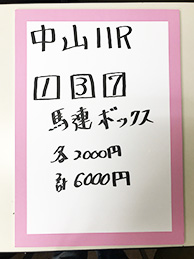 中山11R
1 3 7
馬連ボックス
各2000円
計6000円